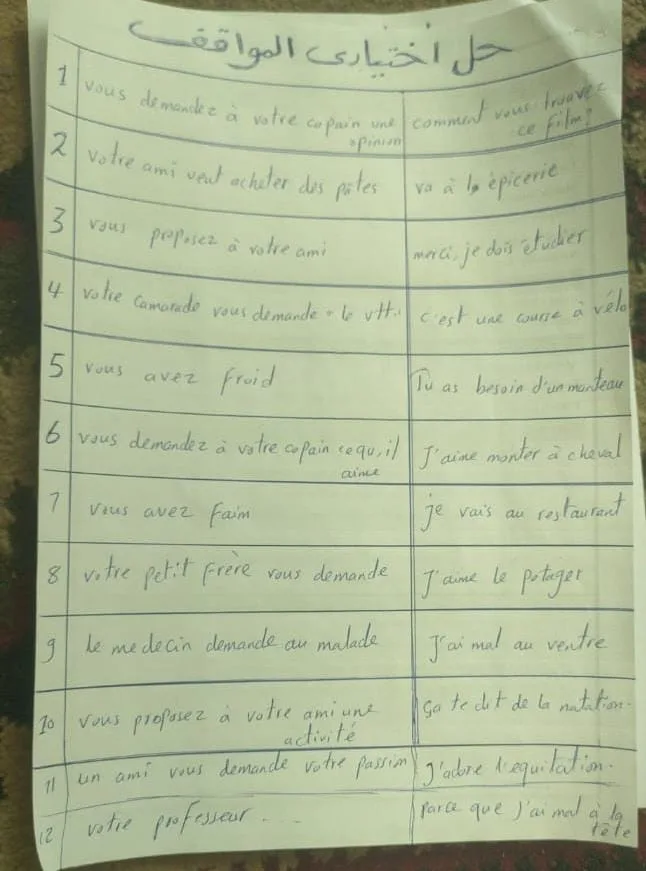 حل اختيارى المواقف
1 vous demandez à votre copain une opinion comment vous trouvez ce film?
2 votre ami veut acheter des pâtes va à la épicerie
3 vous proposez à votre ami merci, je dois étudier
4 votre camarade vous demande "le vtt" c'est une course à vélo
5 vous avez froid Tu as besoin d'un manteau
6 vous demandez à votre copain cequ,il aime J'aime monter à cheval
7 vous avez faim je vais au restaurant
8 votre petit frère vous demande J'aime le potager
9 le medecin demande au malade J'ai mal au ventre
10 vous proposez à votre ami une activité ça te dit de la natation.
11 un ami vous demande votre passion J'adore l'equitation.
12 votre professeur .... parce que J'ai mal à la tête